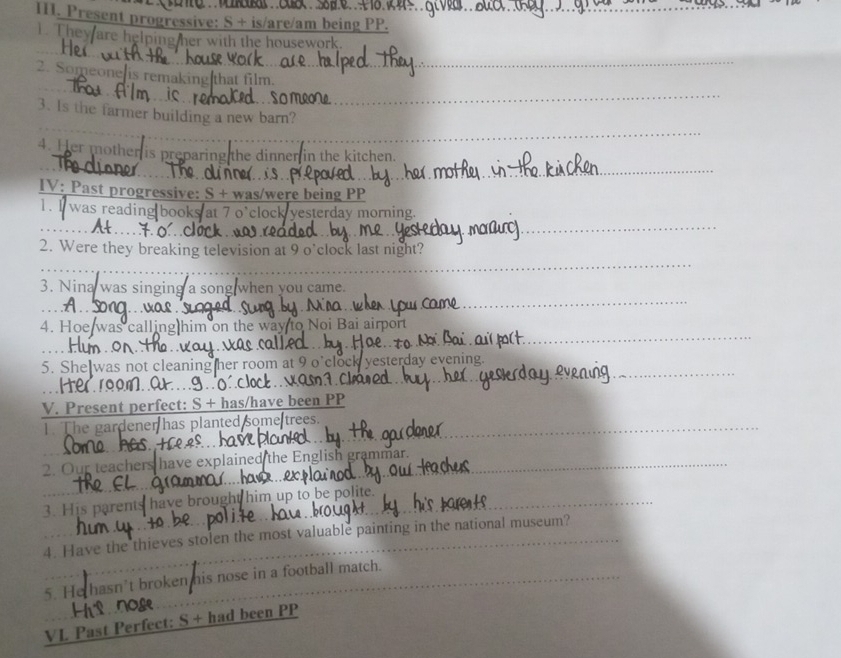 gives did they
III. Present progressive: S + is/are/am being PP.
1. They are helping her with the housework.
Her with the housework are helped they
2. Someone is remaking that film.
That film is remaked someone
3. Is the farmer building a new barn?
4. Her mother is preparing the dinner in the kitchen.
The dinner The dinner is prepared by her mother in the kinchen
IV: Past progressive: S + was/were being PP
1. I was reading books at 7 o'clock yesterday morning.
At 7 o' clock was readed by me yesterday morning
2. Were they breaking television at 9 o'clock last night?
3. Nina was singing a song when you came.
A song was singed sung by Nina when you came
4. Hoe was calling him on the way to Noi Bai airport
Hum on the way was called by Hoe to Noi Bai airport
5. She was not cleaning her room at 9 o'clock yesterday evening.
Her room at 9 o' clock wasn't cleaned buy her yesterday evening
V. Present perfect: S + has/have been PP
1. The gardener has planted some trees.
Some has trees have planted by the gardener
2. Our teachers have explained the English grammar.
the EL grammar have explained by our teachers
3. His parents have brought him up to be polite.
hum up to be polite have brought by his parents
4. Have the thieves stolen the most valuable painting in the national museum?
5. He hasn't broken his nose in a football match.
His nose
VI. Past Perfect: S + had been PP